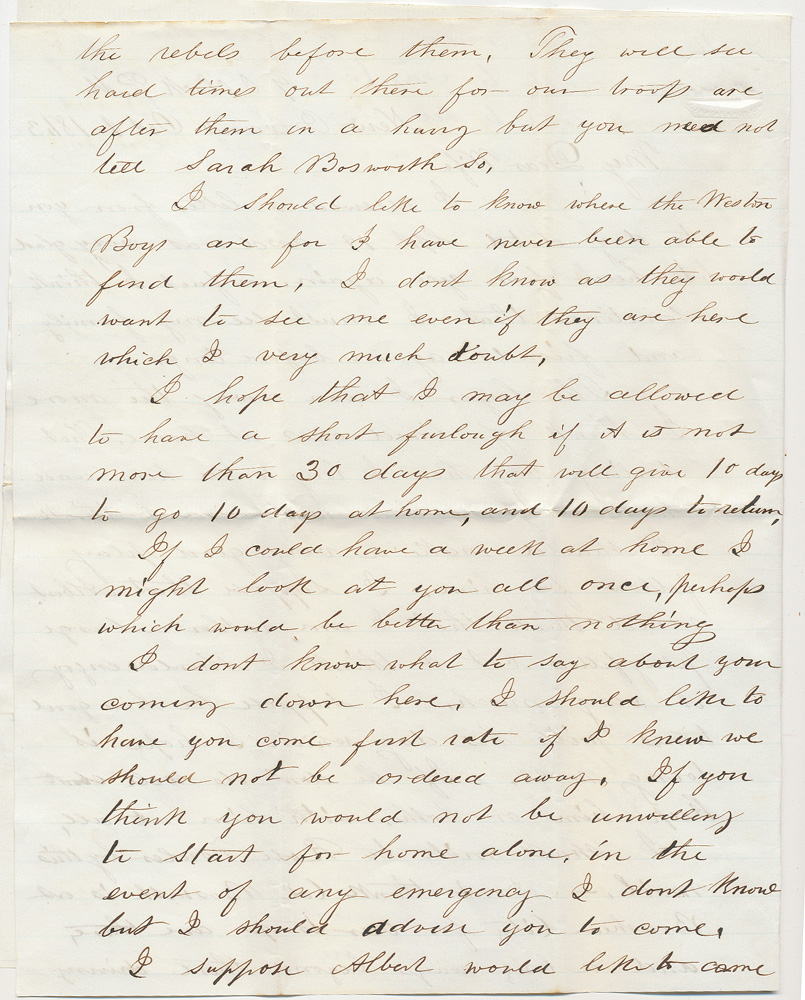 the rebels before them. They will see
hard times out there for our troops are
after them in a hurry but you need not
tell Sarah Bosworth so.
I should like to know where the Weston
Boys are for I have never been able to
find them. I dont know as they would
want to see me even if they are here
which I very much doubt.
I hope that I may be allowed
to have a short furlough if it is not
more than 30 days that will give 10 days
to go 10 days at home, and 10 days to return,
If I could have a week at home I
might look at you all once, perhaps
which would be better than nothing
I dont know what to say about your
coming down here. I should like to
have you come first rate if I knew we
should not be ordered away. If you
think you would not be unwilling
to start for home alone, in the
event of any emergency I dont know
but I should advise you to come.
I suppose Albert would like to come